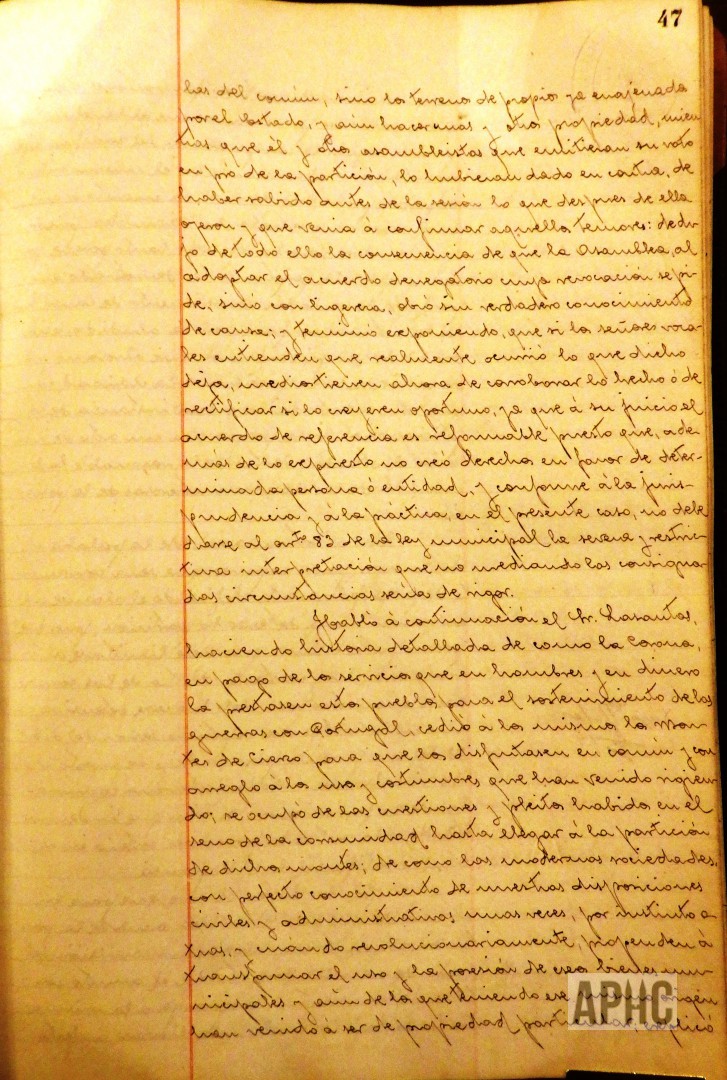 47
les del común, sino los terrenos de propios ya enajenados
por el Estado, y aún hacer mas y otra propiedad, mien-
tras que él y otros asambleistas que emitieran su voto
en pró de la partición, lo hubieran dado en contra, de
haber sabido antes de la sesión lo que despues de ella
oyeron y que venia á confirmar aquellos temores: dedu-
jo de todo ello la consecuencia de que la Asamblea, al
adoptar el acuerdo denegatorio cuya revocación se pi-
de, sinó con ligereza, obró sin verdadero conocimiento
de causa; y terminó exponiendo, que si los señores voca-
les entienden que realmente ocurrió lo que dicho
deja, medios tienen ahora de corroborar los hechos ó de
rectificar si lo creyeren oportuno, ya que á su juicio el
acuerdo de referencia es reformable puesto que, ade-
más de lo expuesto no creó derechos en favor de deter-
minada persona ó entidad, y conforme á la juris-
prudencia y á la práctica, en el presente caso, no debe
darse al artº 83 de la ley municipal la severa y restric-
tiva interpretación que no mediando las consigna-
das circunstancias sería de rigor.
Habló á continuación el Sr. Lasantas,
haciendo historia detallada de como la Corona,
en pago de los servicios que en hombres y en dinero
la prestasen estos pueblos para el sostenimiento de las
guerras con Portugal, cedió á los mismos los Mon-
tes de Cierzo para que los disfrutasen en común y con
arreglo á los usos y costumbres que han venido rigien-
do; se ocupó de las cuestiones y pleitos habidos en el
seno de la comunidad hasta llegar á la partición
de dichos montes; de como las modernas sociedades,
con perfecto conocimiento de nuestras disposiciones
civiles y administrativas unas veces, por instinto o-
tras, y cuando revolucionariamente, propenden á
transformar el uso y la posesión de esos bienes mu-
nicipales y aún de los que teniendo ese mismo origen
han venido á ser de propiedad particular, explicó
APHC